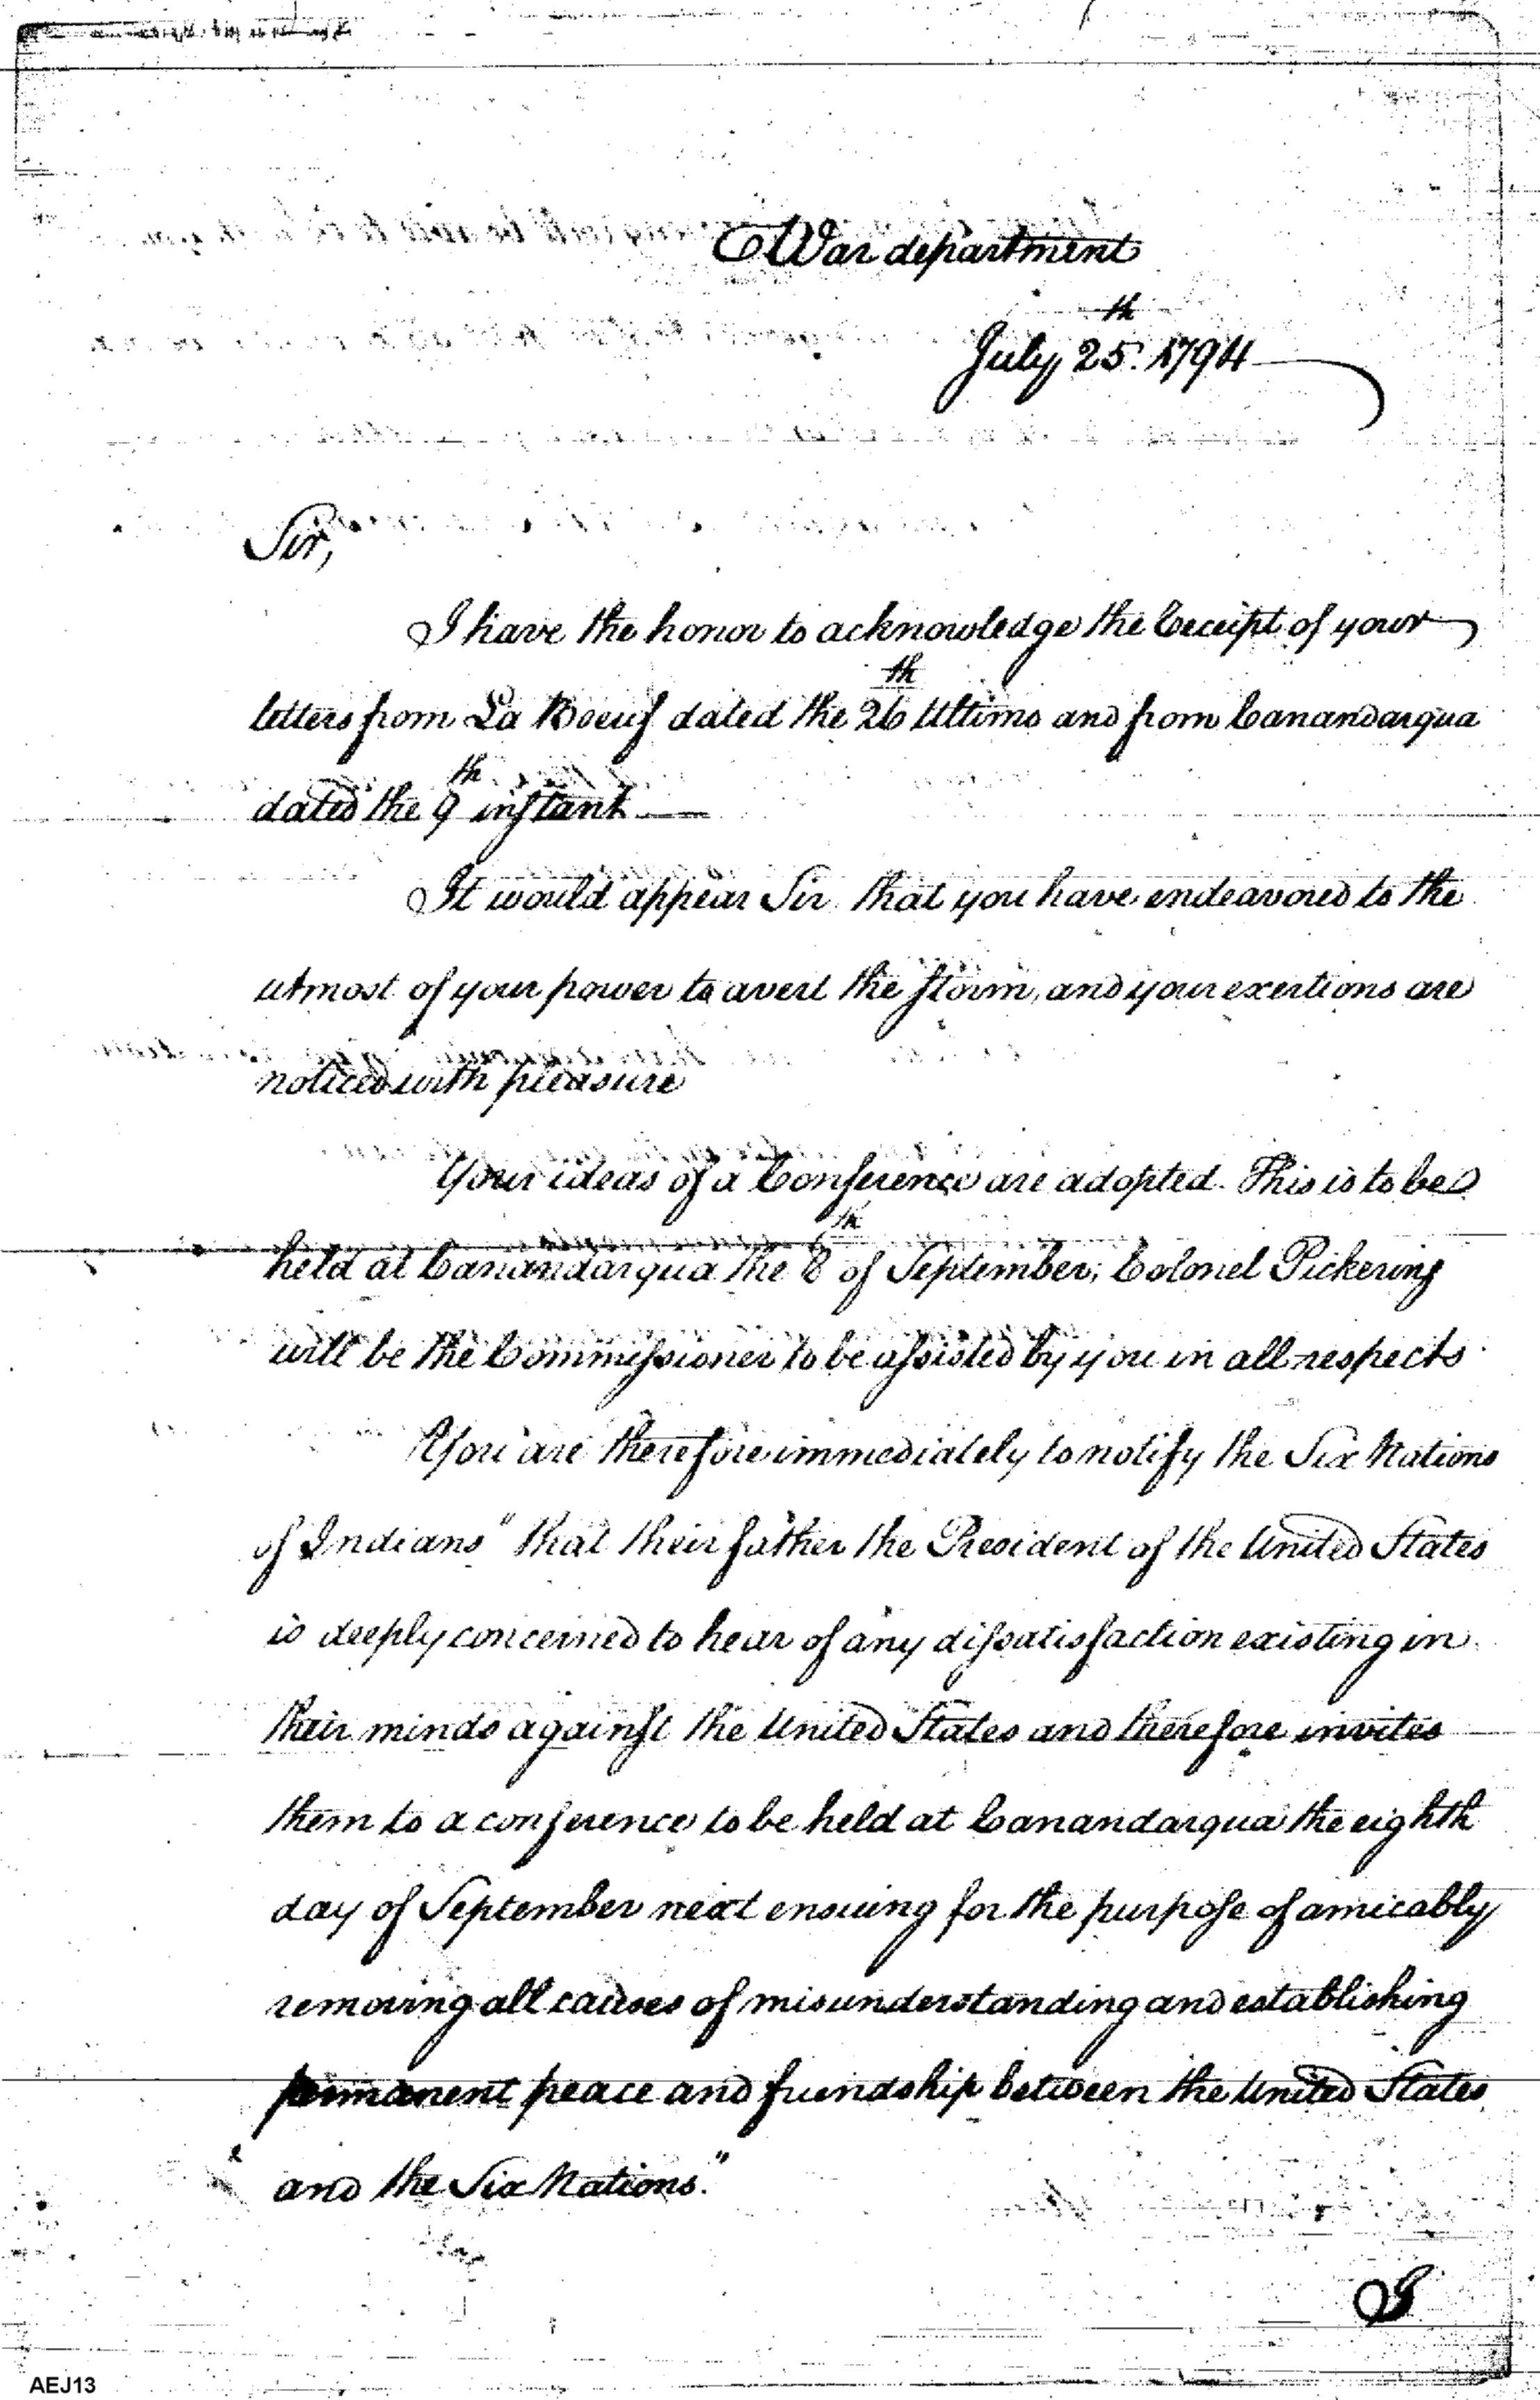 War department
July 25th. 1794
Sir,
I have the honor to acknowledge the Receipt of your
letters from La Boeuf dated the 26th Ultimo and from Canandarqua
dated the 9th instant
It would appear Sir that you have endeavored to the
utmost of your power to avert the storm, and your exertions are
noticed with pleasure
Your ideas of a Conference are adopted. This is to be
held at Canandarqua the 8th of September; Colonel Pickering
will be the Commissioner to be assisted by you in all respects.
You are therefore immediately to notify the Six Nations
of Indians "that their father the President of the United States
is deeply concerned to hear of any dissatisfaction existing in
their minds against the United States and therefore invites
them to a conference to be held at Canandarqua the eighth
day of September next ensuing for the purpose of amicably
removing all causes of misunderstanding and establishing
permanent peace and friendship between the United States
and the Six Nations."
I
AEJ13